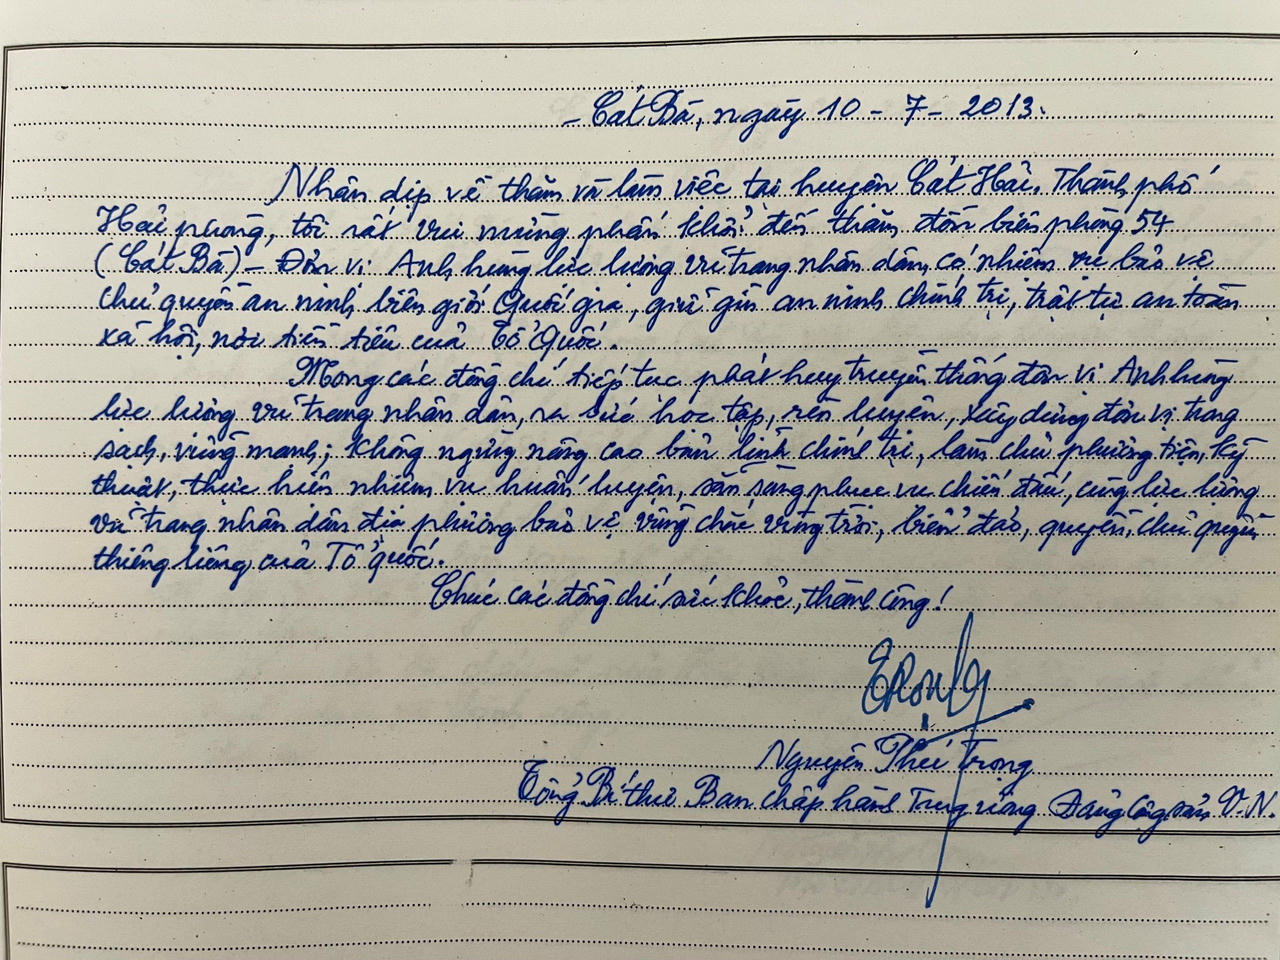 - Cát Bà, ngày 10 - 7 - 2013.
Nhân dịp về thăm và làm việc tại huyện Cát Hải, Thành phố
Hải phòng, tôi rất vui mừng phấn khởi đến thăm đồn biên phòng 54
(Cát Bà) - Đơn vị Anh hùng lực lượng vũ trang nhân dân, có nhiệm vụ bảo vệ
chủ quyền an ninh, biên giới Quốc gia, giữ gìn an ninh chính trị, trật tự an toàn
xã hội, nơi tiền tiêu của Tổ Quốc.
Mong các đồng chí tiếp tục phát huy truyền thống đơn vị Anh hùng
lực lượng vũ trang nhân dân, ra sức học tập, rèn luyện, xây dựng đơn vị trong
sạch, vững mạnh; không ngừng nâng cao bản lĩnh chính trị, làm chủ phương tiện, kỹ
thuật, thực hiện nhiệm vụ huấn luyện, sẵn sàng phục vụ chiến đấu, cùng lực lượng
vũ trang nhân dân địa phương bảo vệ vững chắc vùng trời, biển đảo, quyền, chủ quyền
thiêng liêng của Tổ quốc.
Chúc các đồng chí sức khỏe, thành công!
Trọng
Nguyễn Phú Trọng
Tổng Bí thư Ban chấp hành Trung ương Đảng Cộng sản V.N.